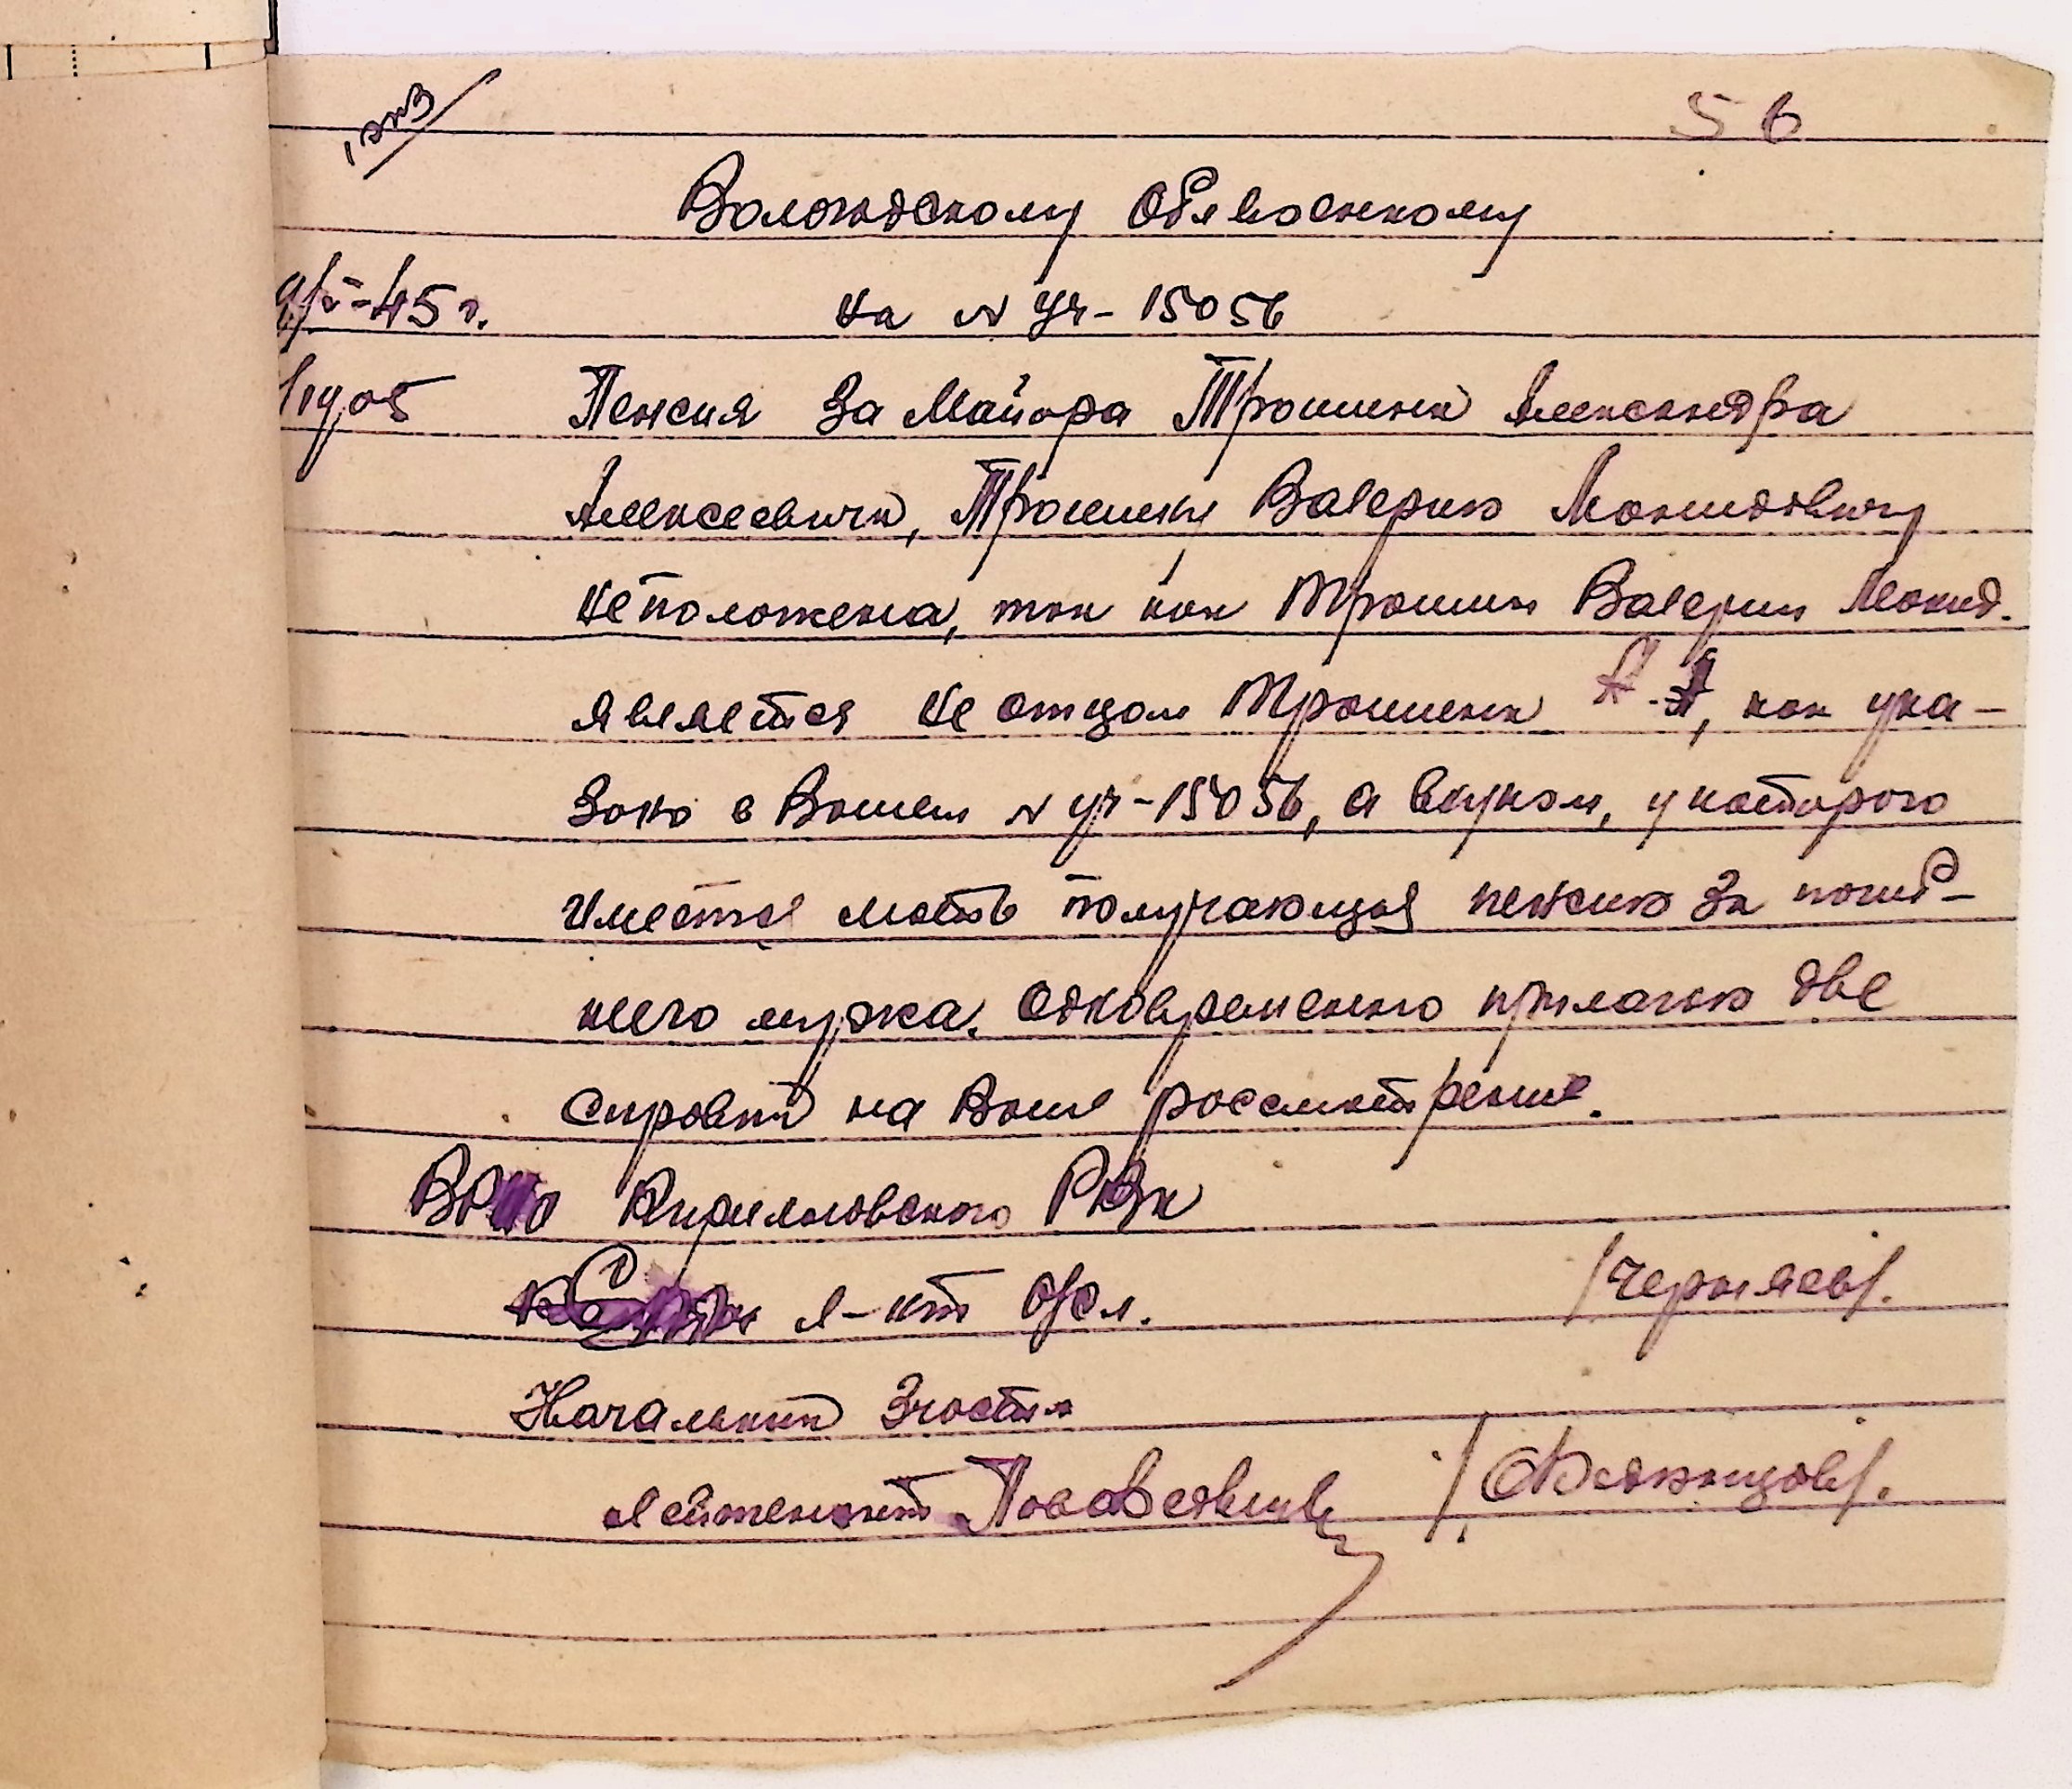 1 экз
56
Вологодскому Облвоенкому
9/V-45 г.
на № уч-15056
Пенсия за Майора Трошина Александра
Алексеевича, Трошину Валерию Леонидовичу
не положена, так как Трошин Валерий Леонид.
является не отцом Трошина А. А, как ука-
зано в Вашем № уч-15056, а внуком, у которого
имеется мать получающая пенсию за погиб-
шего мужа. Одновременно прилагаю две
справки на Ваше рассмотрение.
Кирилловского РВК
л-нт а/сл.
/Черняев/.
Начальник 3 части
лейтенант